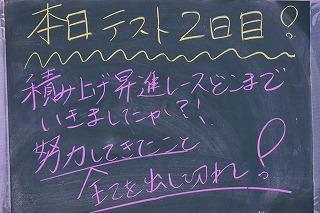 本日テスト2日目!
積み上げ昇進レースどこまで
いきましたにゃし?!
努力してきたこと
全てを出し切れ!